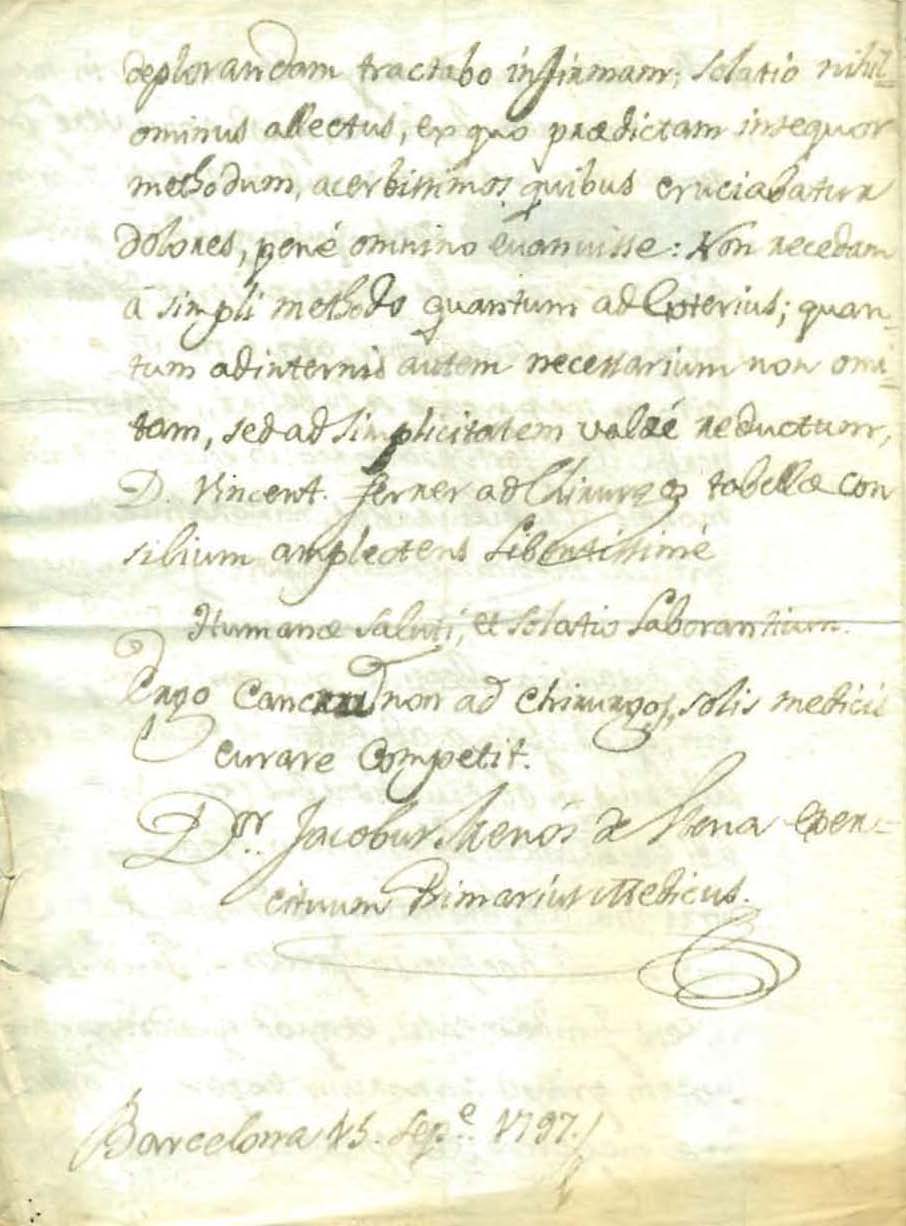 deplorandam tractabo infirmam; solatio nihil-
ominus allectus, ex quo prædictam insequor
methodum, acerbissimos quibus cruciabatur
dolores, pené omnino evanuisse: Non recedam
á simpli methodo quantum ad Exterius; quan-
tum ad internis autem necessarium non omi-
tam, sed ad simplicitatem valdé reductum,
D. Vincent. ferrer ad Chirurg tabellæ con
silium amplectens libentissimé
Humanæ saluti, et solatio laborantium.
Ergo Cancrum non ad chirurgos, solis medicis
curare Competit.
Dor. Jacobus Menós de Llena exer-
cituum Primarius Medicus.
Barcelona 15. Sepe. 1797.